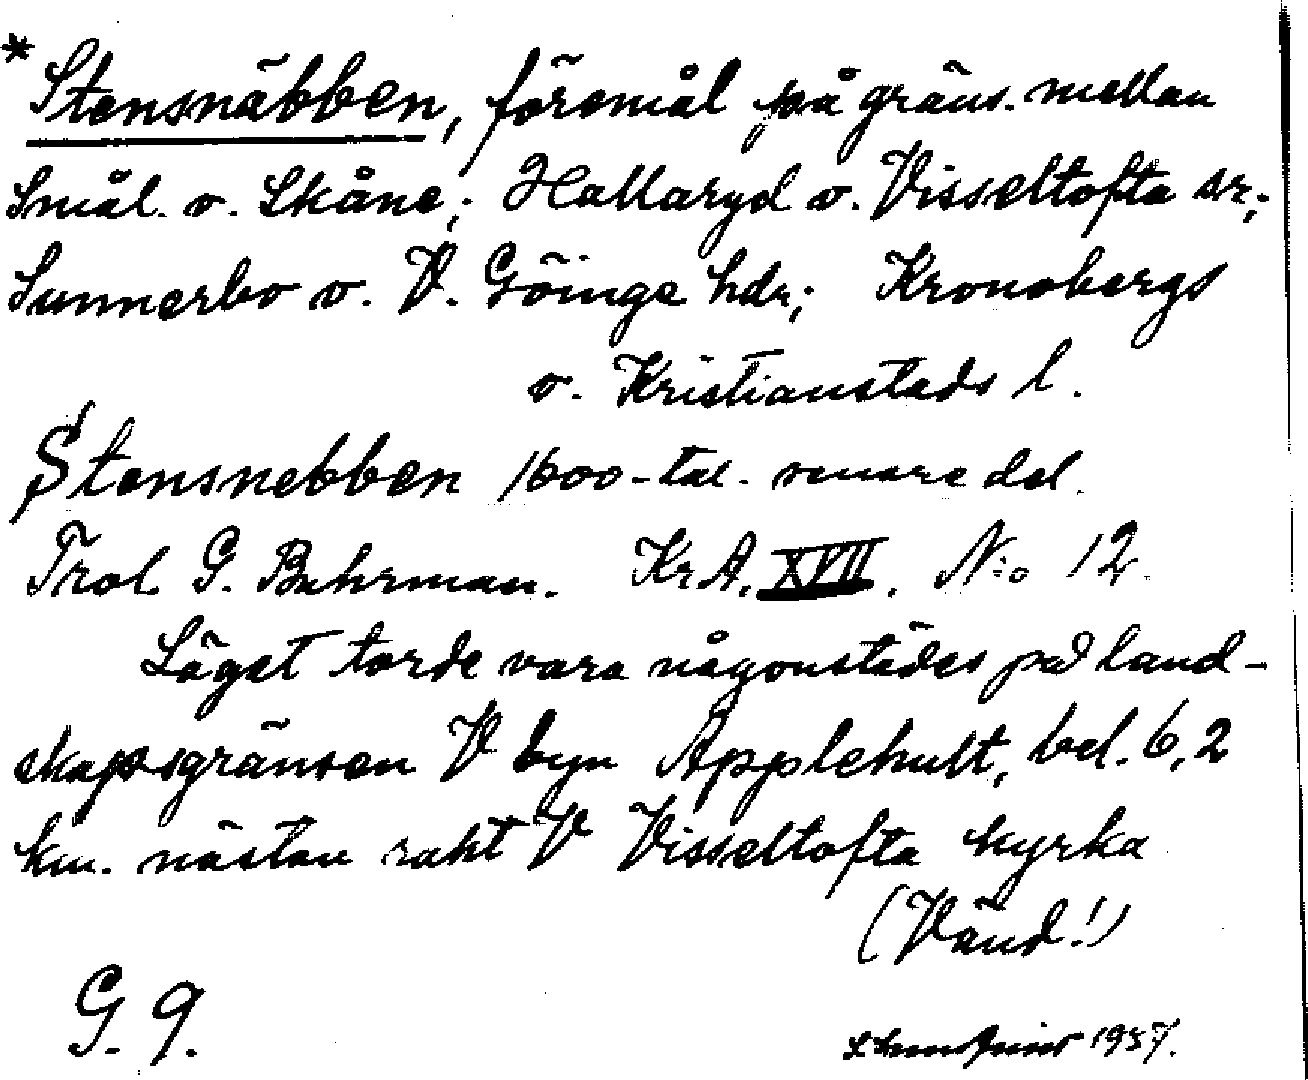 *Stensnäbben, föremål på gräns. mellan
Smål. o. Skåne; Hallaryd o. Visseltofta sr;
Sunnerbo o. V. Göinge hdr; Kronobergs
o. Kristianstads l.
Stensnebben 1600-tal. senare del.
Trol G. Buhrman. KrA. XVII. N:o 12.
Läget torde vara någonstädes på land-
skapsgränsen V byn Applehult, bel. 6,2
km. nästan rakt V Visseltofta kyrka
(Vänd!)
G. 9.
1957.